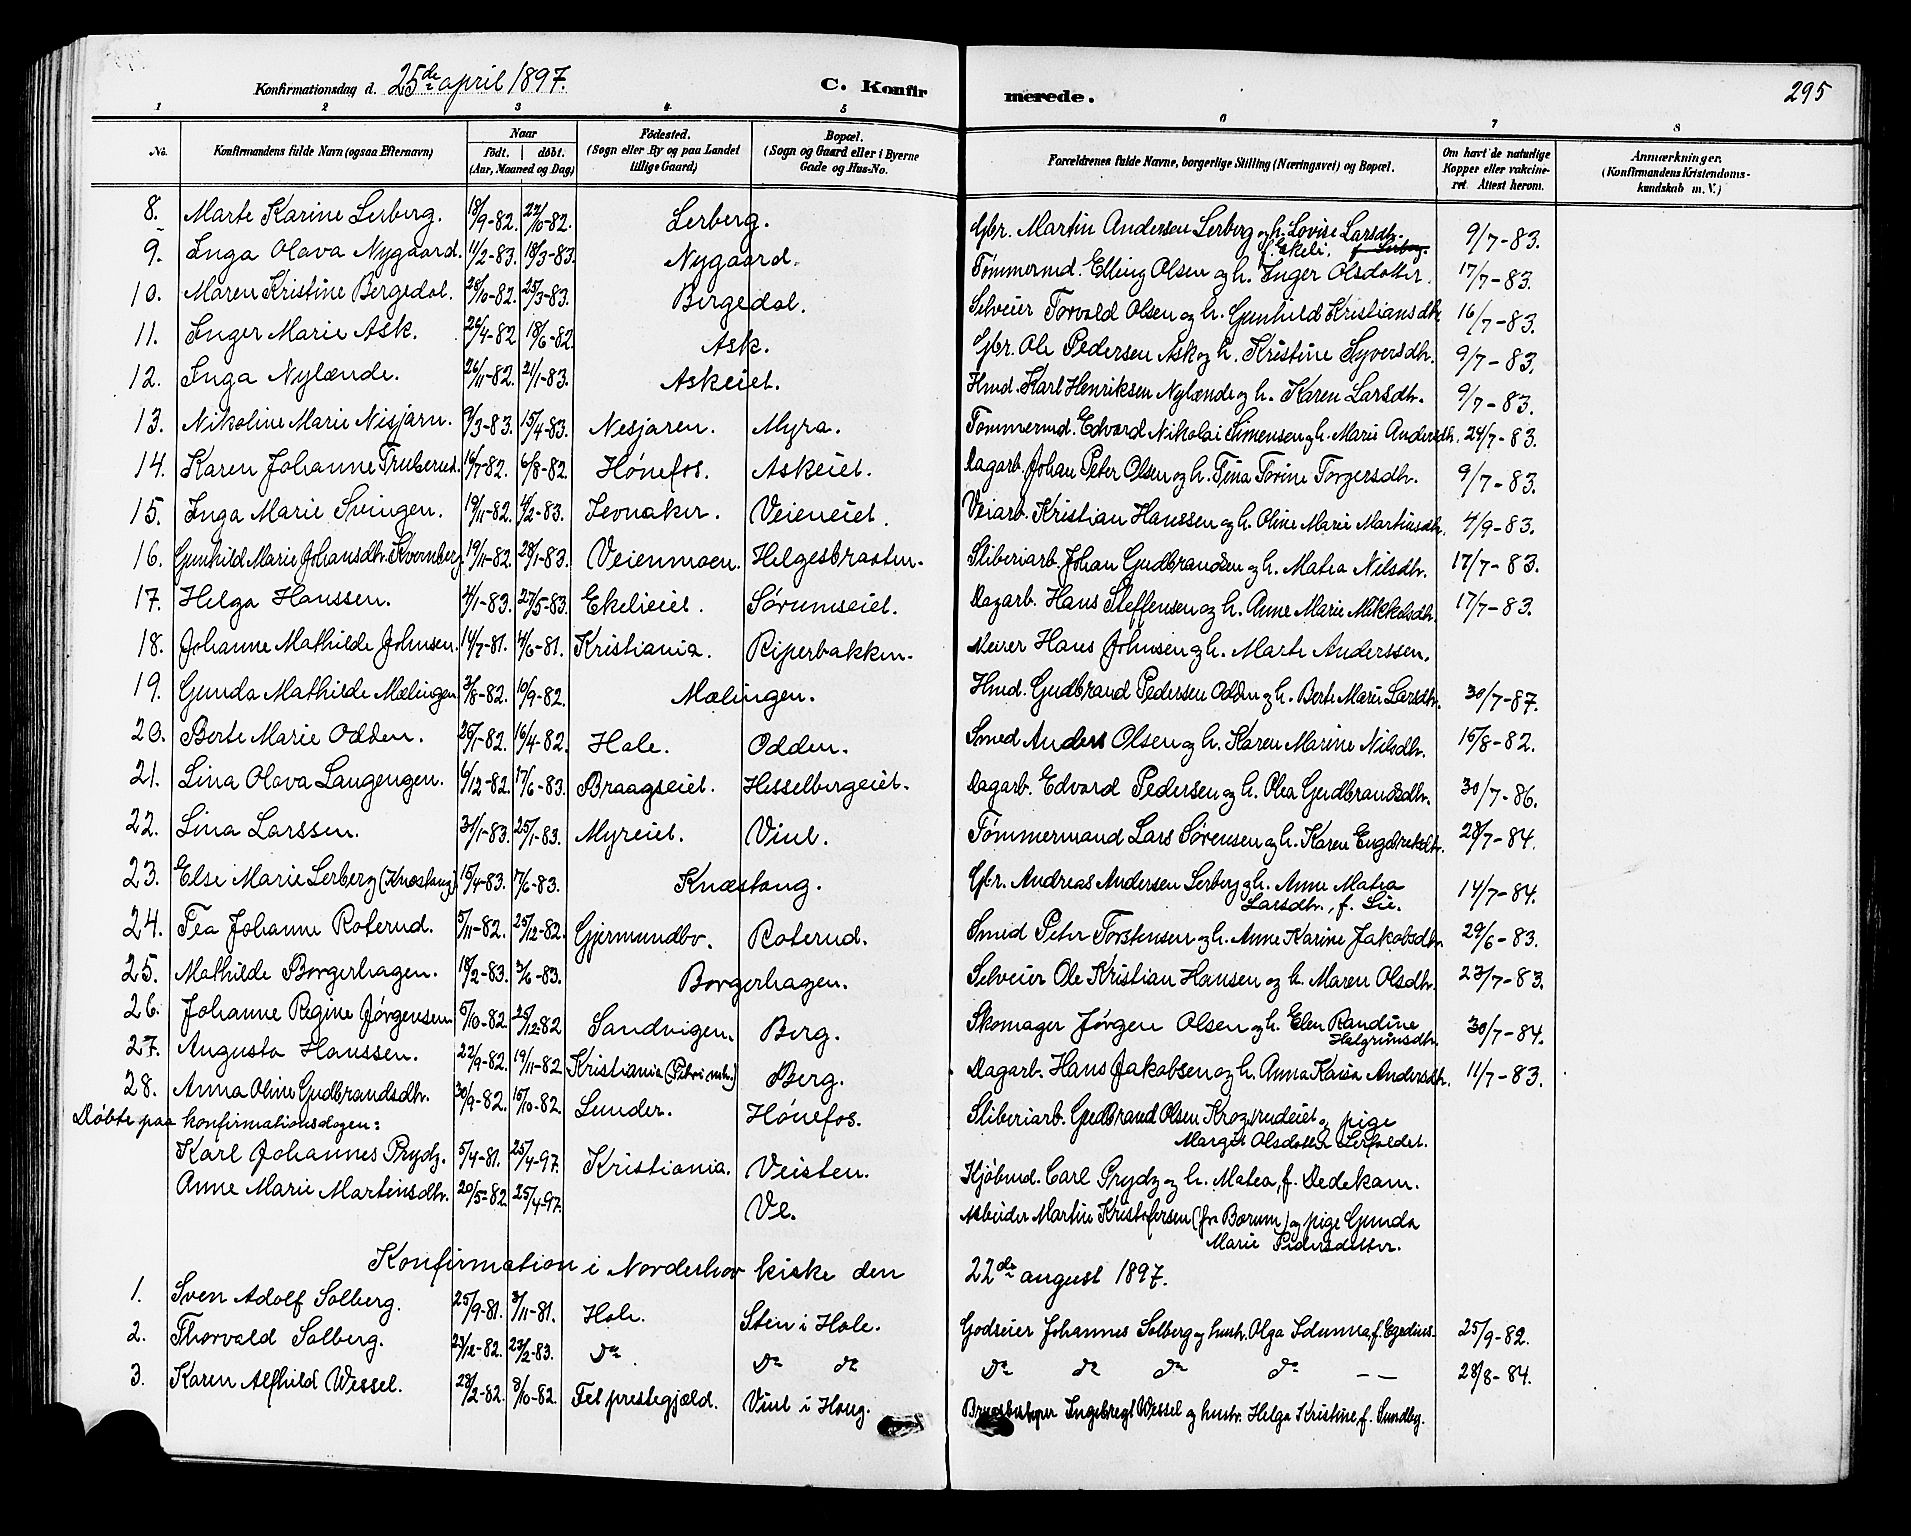 Konfirmationsdag d. 25de april 1897. C. Konfirmerede. 295
1 2 3 4 5 6 7 8
No. Konfirmandens fulde Navn (ogsaa Efternavn) Naar født. døbt. (Aar, Maaned og Dag) Fødested. (Sogn eller By og paa Landet tillige Gaard) Bopæl. (Sogn og Gaard eller i Byerne Gade og Hus-No. Forældrenes fulde Navne, borgerlige Stilling (Næringsvei) og Bopæl. Om havt de naturlige Kopper eller vakcineret. Attest herom. Anmærkninger. (Konfirmandens Kristendomskundskab m. V.)
8. Marte Karine Lerberg. 18/9-82. 22/10-82. Lerberg. Gbr. Martin Andersen Lerberg og h. Lovise Larsdtr. f. Ekeli. f. Lerberg. 9/7-83.
9. Inga Olava Nygaard. 11/2-83. 18/3-83. Nygaard. Tømmermd. Elling Olsen og h. Inger Olsdotter. 17/7-83.
10. Maren Kristine Bergedal. 28/10-82. 25/3-83. Bergedal. Selveier Torvald Olsen og h. Gunhild Kristiansdtr. 16/7-83.
11. Inger Marie Ask. 26/4-82 18/6-82 Ask. Gbr. Ole Pedersen Ask og h. Kristine Syversdtr. 9/7-83.
12. Inga Nylænde. 26/11-82. 21/1-83. Askeiet. Hmd. Karl Henriksen Nylænde og h. Karen Larsdtr. 9/7-83.
13. Nikoline Marie Nisjarn. 9/3-83. 15/4-83. Nesjaren. Myra. Tømmermd. Edvard Nikolai Simensen og h. Marie Andersdtr. 24/7-83.
14. Karen Johanne Truberud. 16/7-82. 6/8-82. Hønefos. Askeiet. Dagarb. Johan Peter Olsen og h. Tina Torine Torgersdtr. 9/7-83.
15. Inga Marie Svingen. 19/11-82. 18/2-83. Jevnaker. Veieneiet. Veiarb. Kristian Hanssen og h. Oline Marie Martinsdtr. 4/9-83.
16. Gunhild Marie Johansdtr. Kvernberg. 19/11-82. 28/1-83. Veienmoen. Helgesbraaten. Sliberiarb. Johan Gudbrandsen og h. Matea Nilsdtr. 17/7-83.
17. Helga Hanssen. 4/1-83. 27/5-83. Ekelieiet. Sørumseiet. Dagarb. Hans Steffensen og h. Anne Marie Mikkelsdtr. 17/7-83.
18. Johanne Mathilde Johnsen. 14/7-81. 4/6-81. Kristiania. Piperbakken. Meier Hans Johnsen og h. Marte Anderssen.
19. Gunda Mathilde Mælingen 3/8-82. 10/9-82. Mælingen. Hmd. Gudbrand Pedersen Odden og h. Berte Marie Larsdtr. 30/7-87.
20. Berte Marie Odden. 26/1-82. 16/4-82. Hole. Odden. Smed Anders Olsen og h. Karen Marine Nilsdtr. 15/8-82.
21. Lina Olava Langengen. 6/12-82. 17/6-83. Braagseiet. Hesselbergeiet. Dagarb. Edvard Pedersen og h. Olea Gudbrandsdtr. 30/7-86.
22. Lina Larssen. 31/1-83. 25/1-83. Myreiet. Viul. Tømmermand Lars Sørensen og h. Karen Engebretsdtr. 28/7-84.
23. Else Marie Lerberg (Knestang). 15/4-83. 17/6-83. Knæstang. Gbr. Andreas Andersen Lerberg og h. Anne Matea Larsdtr., f. Lie. 14/7-84.
24. Tea Johanne Roterud. 5/11-82. 25/12-82. Gjermundbo. Roterud. Smed Peter Torstensen og h. Anne Karine Jakobsdtr. 29/6-83.
25. Mathilde Borgerhagen. 18/2-83. 3/6-83. Borgerhagen. Selveier Ole Kristian Hansen og h. Maren Olsdtr. 23/7-83.
26. Johanne Regine Jørgensen 5/10-82. 25/12-82 Sandvigen. Berg. Skomager Jørgen Olsen og h. Elen Randine Helgrimsdtr. 30/7-84.
27. Augusta Hanssen. 22/9-82. 19/11-82 Kristiania (Petri mh.) Berg. Dagarb. Hans Jakobsen og h. Anna Kaisa Andersdtr. 11/7-83.
28. Anna Oline Gudbrandsdtr. 30/9-82. 15/10-82. Lunder. Hønefos. Sliberiarb. Gudbrand Olsen Krogsrudeiet og pige Margit Olsdotter Lerfaldet.
Døbte paa konfirmationsdagen:
Karl Johannes Prydz. 5/4-81. 25/4-97. Kristiania. Veisten. Kjøbmd. Carl Prydz og h. Matea, f. Dedekam.
Anne Marie Martinsdtr. 20/5-82 25/4-97. Ve. Arbeider Martin Kristofersen (fra Bærum) og pige Gunda Marie Pedersdotter.
Konfirmation i Norderhov kirke den 22de august 1897.
1. Sven Adolf Solberg. 25/9-81. 3/11-81. Hole. Sten i Hole. Godseier Johannes Solberg og hustr. Olga Idunna, f. Egedius. 25/9-82.
2. Thorvald Solberg. 21/12-82. 23/2-83. do. do do do do do do — — 28/8-84.
3. Karen Alfhild Wessel. 28/2-82. 8/10-82. Fet prestegjæld. Viul i Haug. Brugsbestyrer Ingebregt Wessel og hustr. Helga Kristine, f. Sundby.